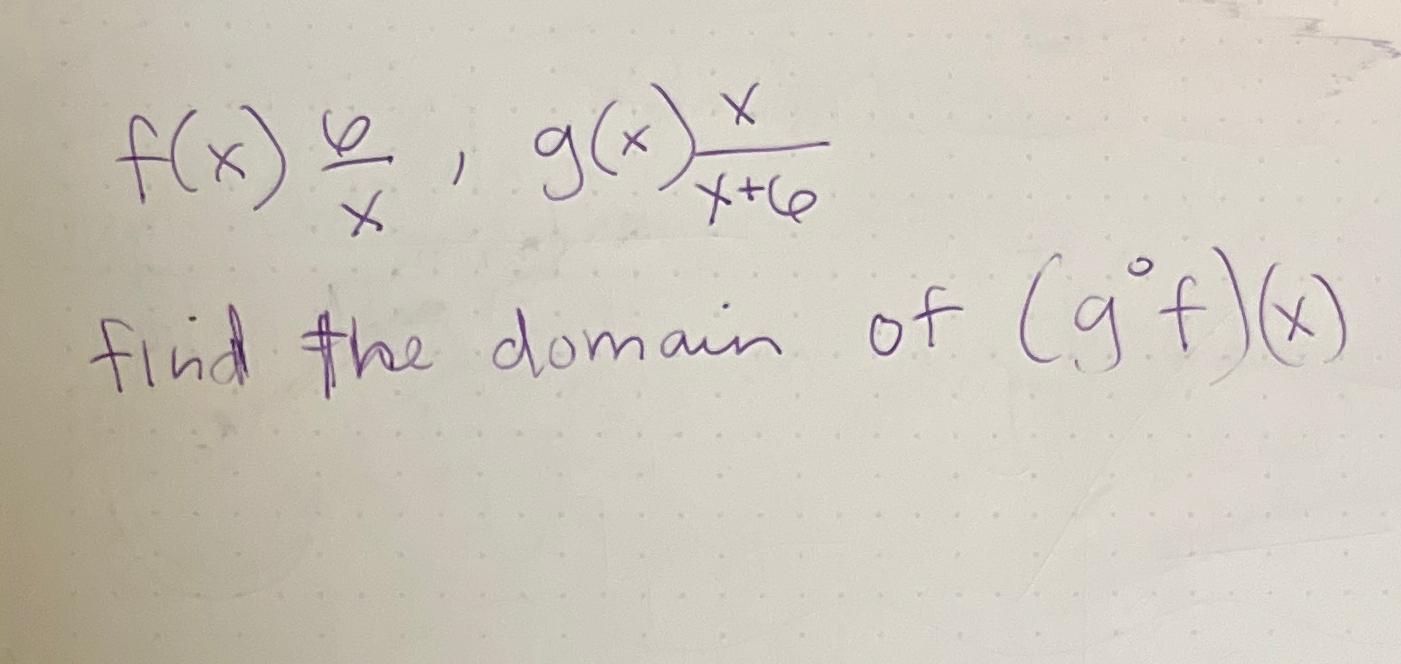 f(x) 6/x , g(x) x/x+6
find the domain of (g°f)(x)